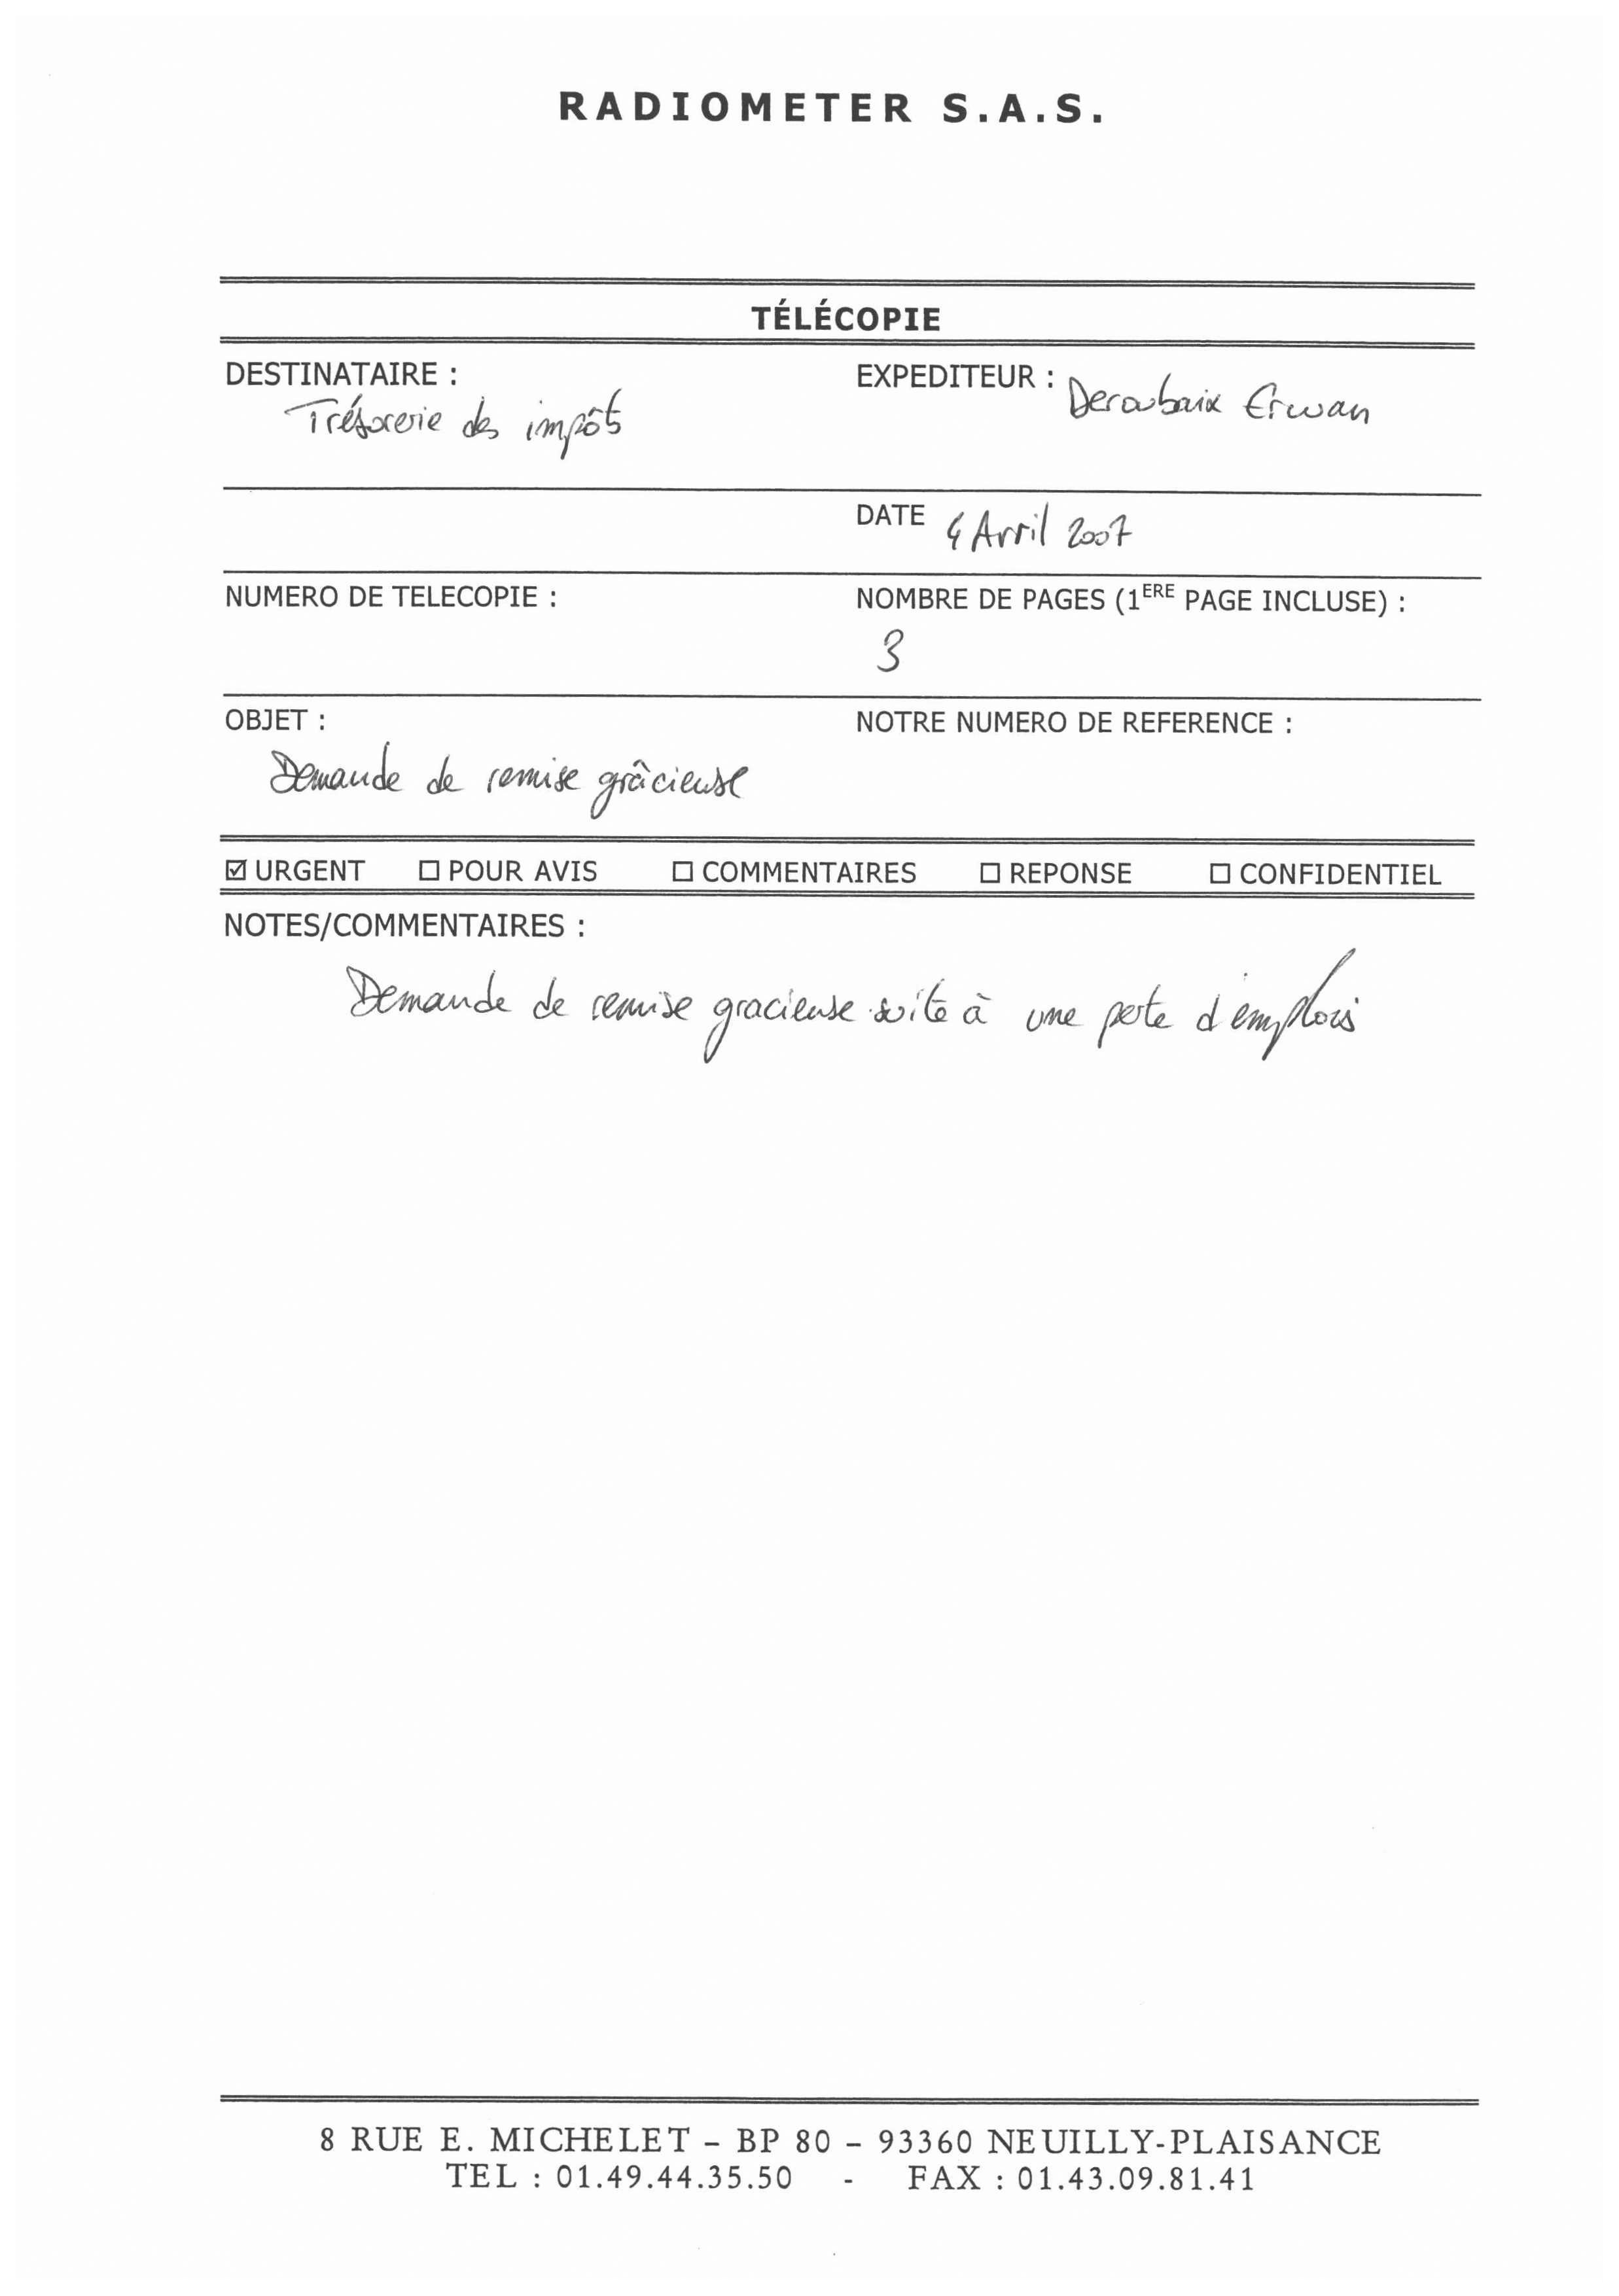 RADIOMETER S.A.S.
TÉLÉCOPIE
DESTINATAIRE :
Trésorerie des impôts
EXPEDITEUR :
Deroubaix Erwan
DATE
4 Avril 2007
NUMERO DE TELECOPIE :
NOMBRE DE PAGES (1ERE PAGE INCLUSE) :
3
OBJET :
Demande de remise grâcieuse
NOTRE NUMERO DE REFERENCE :
☑ URGENT ☐ POUR AVIS ☐ COMMENTAIRES ☐ REPONSE ☐ CONFIDENTIEL
NOTES/COMMENTAIRES :
Demande de remise gracieuse suite à une perte d'emplois
8 RUE E. MICHELET – BP 80 – 93360 NEUILLY-PLAISANCE
TEL : 01.49.44.35.50 - FAX : 01.43.09.81.41